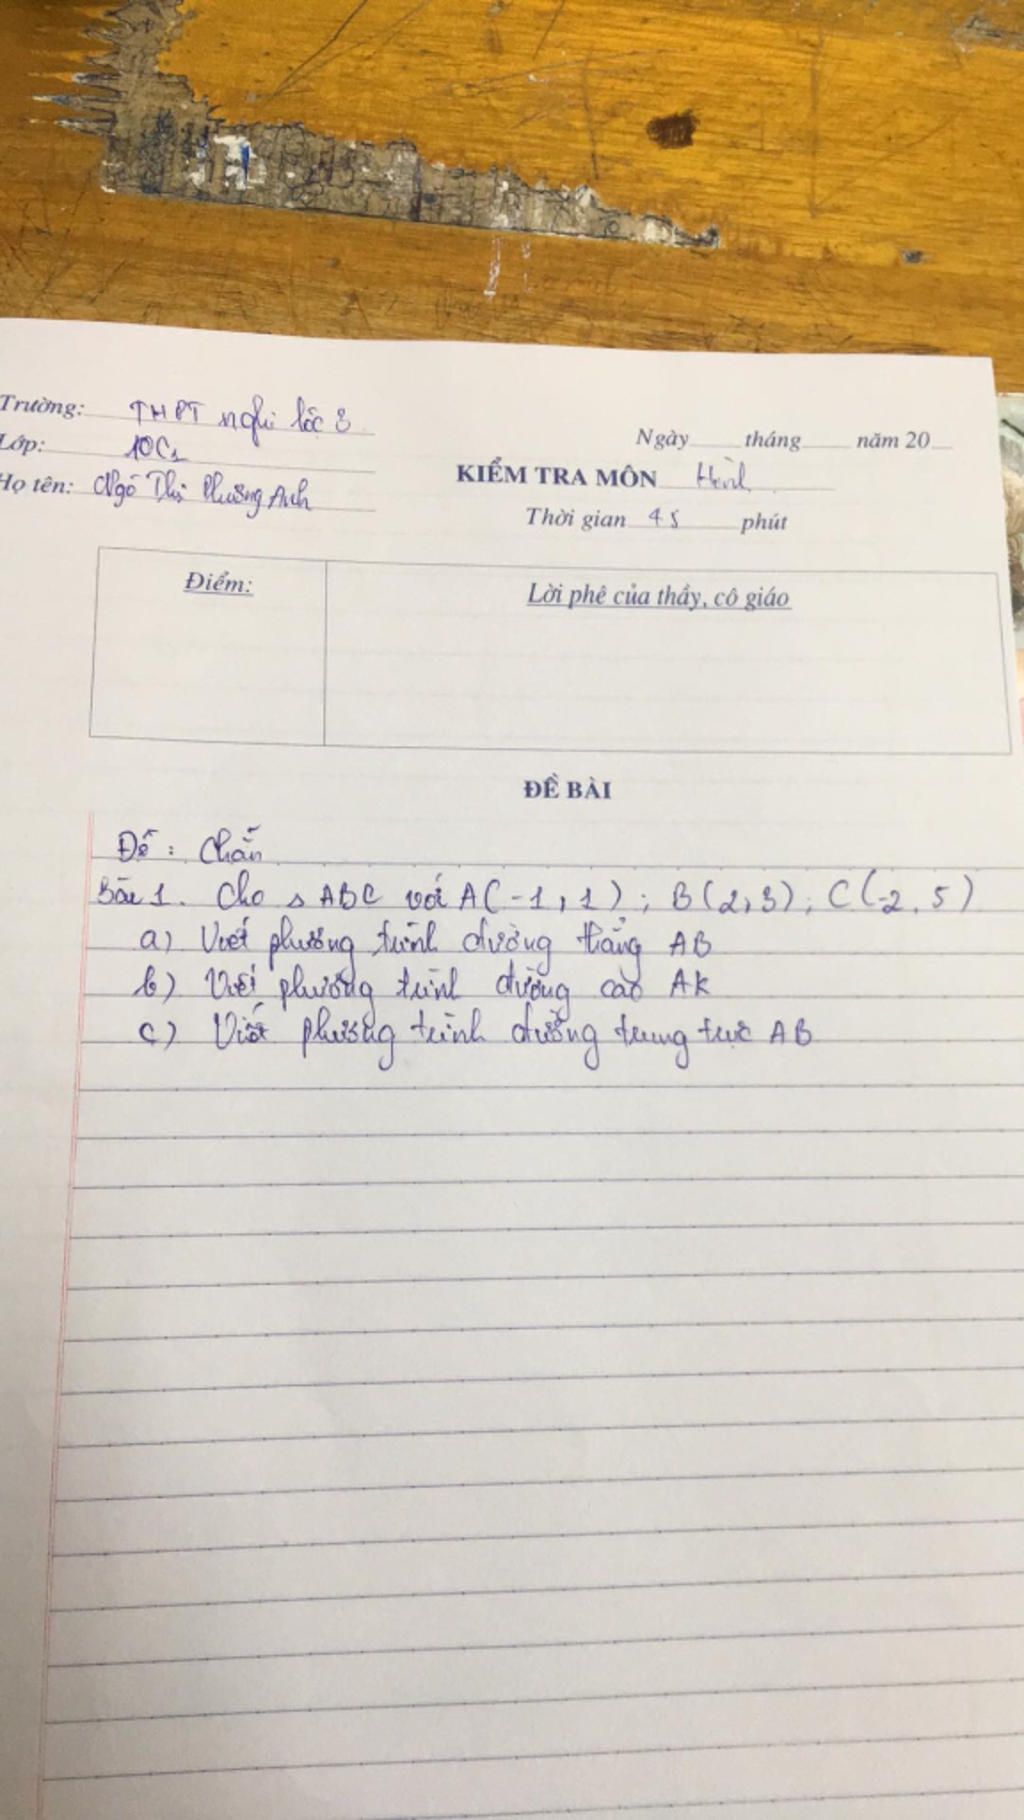 Trường: THPT nghi lộc 3
Lớp: 10C1
Họ tên: Ngô Thị Phương Anh
Ngày tháng năm 20
KIỂM TRA MÔN Hình
Thời gian 45 phút
Điểm:
Lời phê của thầy, cô giáo
ĐỀ BÀI
Đề: Chẵn
Bài 1. Cho △ ABC với A(-1,1); B(2,3); C(-2,5)
a) Viết phương trình đường thẳng AB
b) Viết phương trình đường cao AK
c) Viết phương trình đường trung trực AB